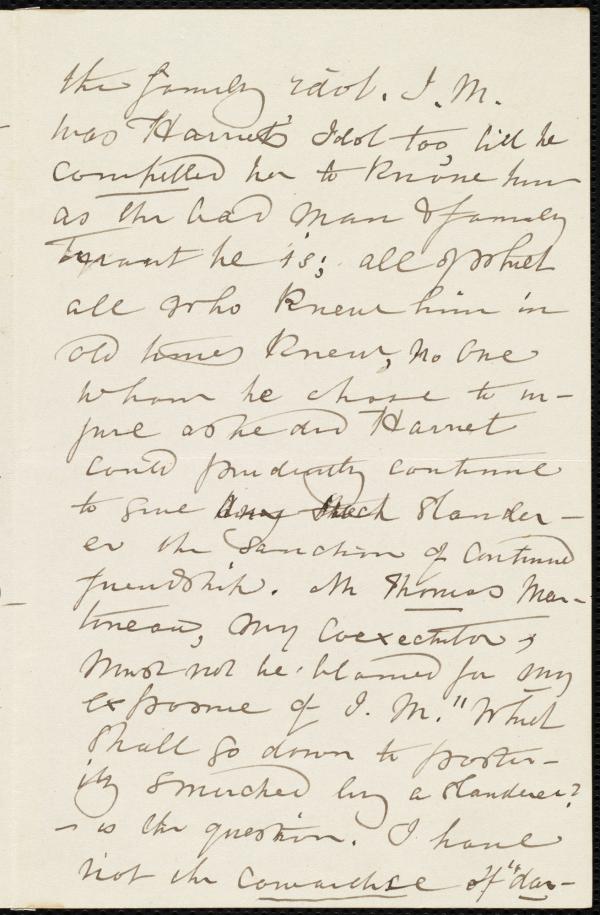 the family idol. J. M.
was Harriet's Idol too, till he
compelled her to know him
as the bad man & family
Tyrant he is; all of which
all who knew him in
old times knew, no one
whom he chose to in-
jure as he did Harriet
could prudently continue
to give any such slander-
er the sanction of continued
friendship. Mr Thomas Mar-
tineau, my Coexecutor,
must not be blamed for my
exposure of J. M. "What
shall go down to poster-
ity smirched by a slanderer?
- is the question. I have
not the cowardice of "dar-